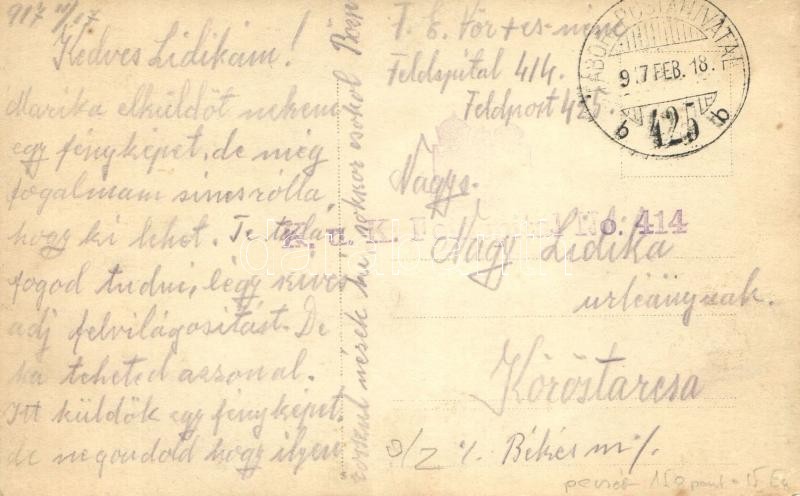 917 II/17
Kedves Lidikám!
Marika elküldöt nekem
egy fényképet, de még
fogalmam sincs rólla,
hogy ki lehet. Te talá
fogod tudni, légy szives
adj felvilágosítást. De
ha teheted azonal.
Itt küldök egy fényképet,
de ne gondold hogy ilyen
nézek ki, sokkor csokol
T. E. Vörtes-néni
Feldspital 414.
Feldpost 425.
TÁBORI POSTAHIVATAL
917 FEB. 18.
b 425 b
K. u. K. Feldspital No. 414
Nagys.
Nagy Lidika
urleánynak.
Köröstarcsa
Békés m/.